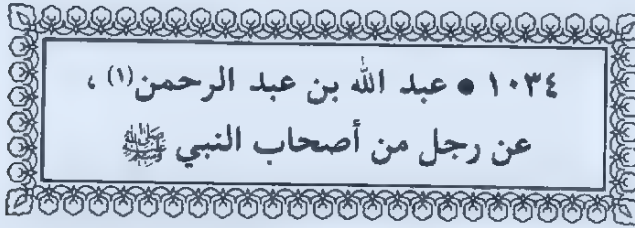 ١٠٣٤ ● عبد الله بن عبد الرحمن(١) ،
عن رجل من أصحاب النبي ﷺ